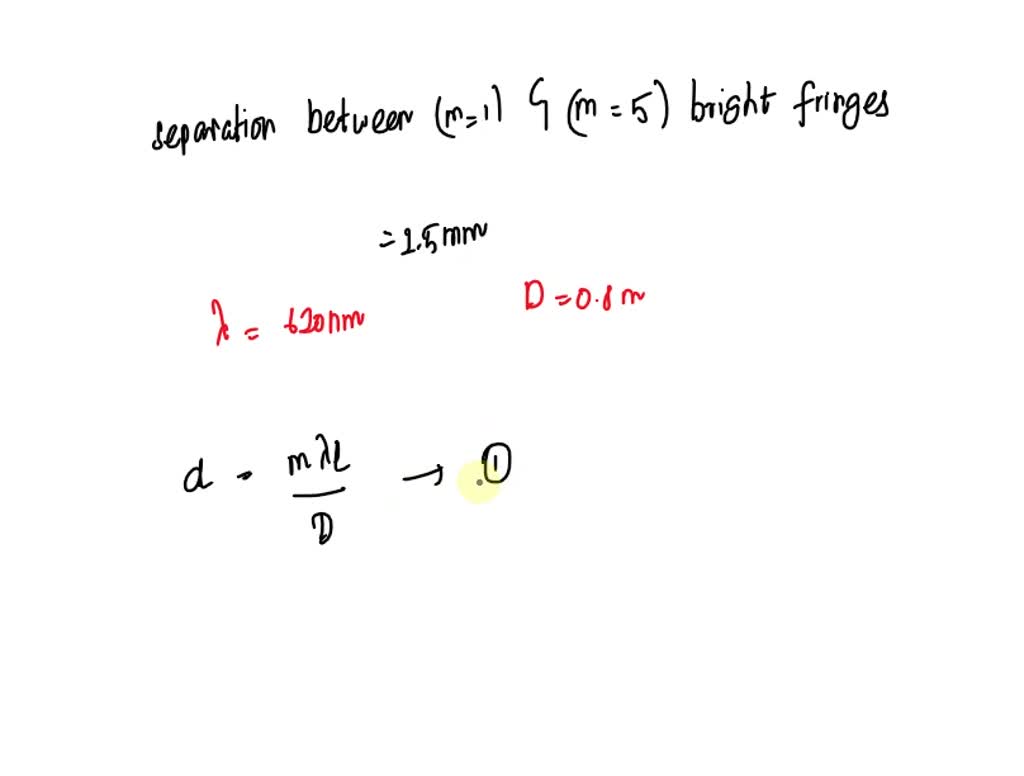 separation between (m=1) & (m = 5) bright fringes
= 2.5mm
λ = 620nm
D = 0.8 m
d = mλL / D → ①